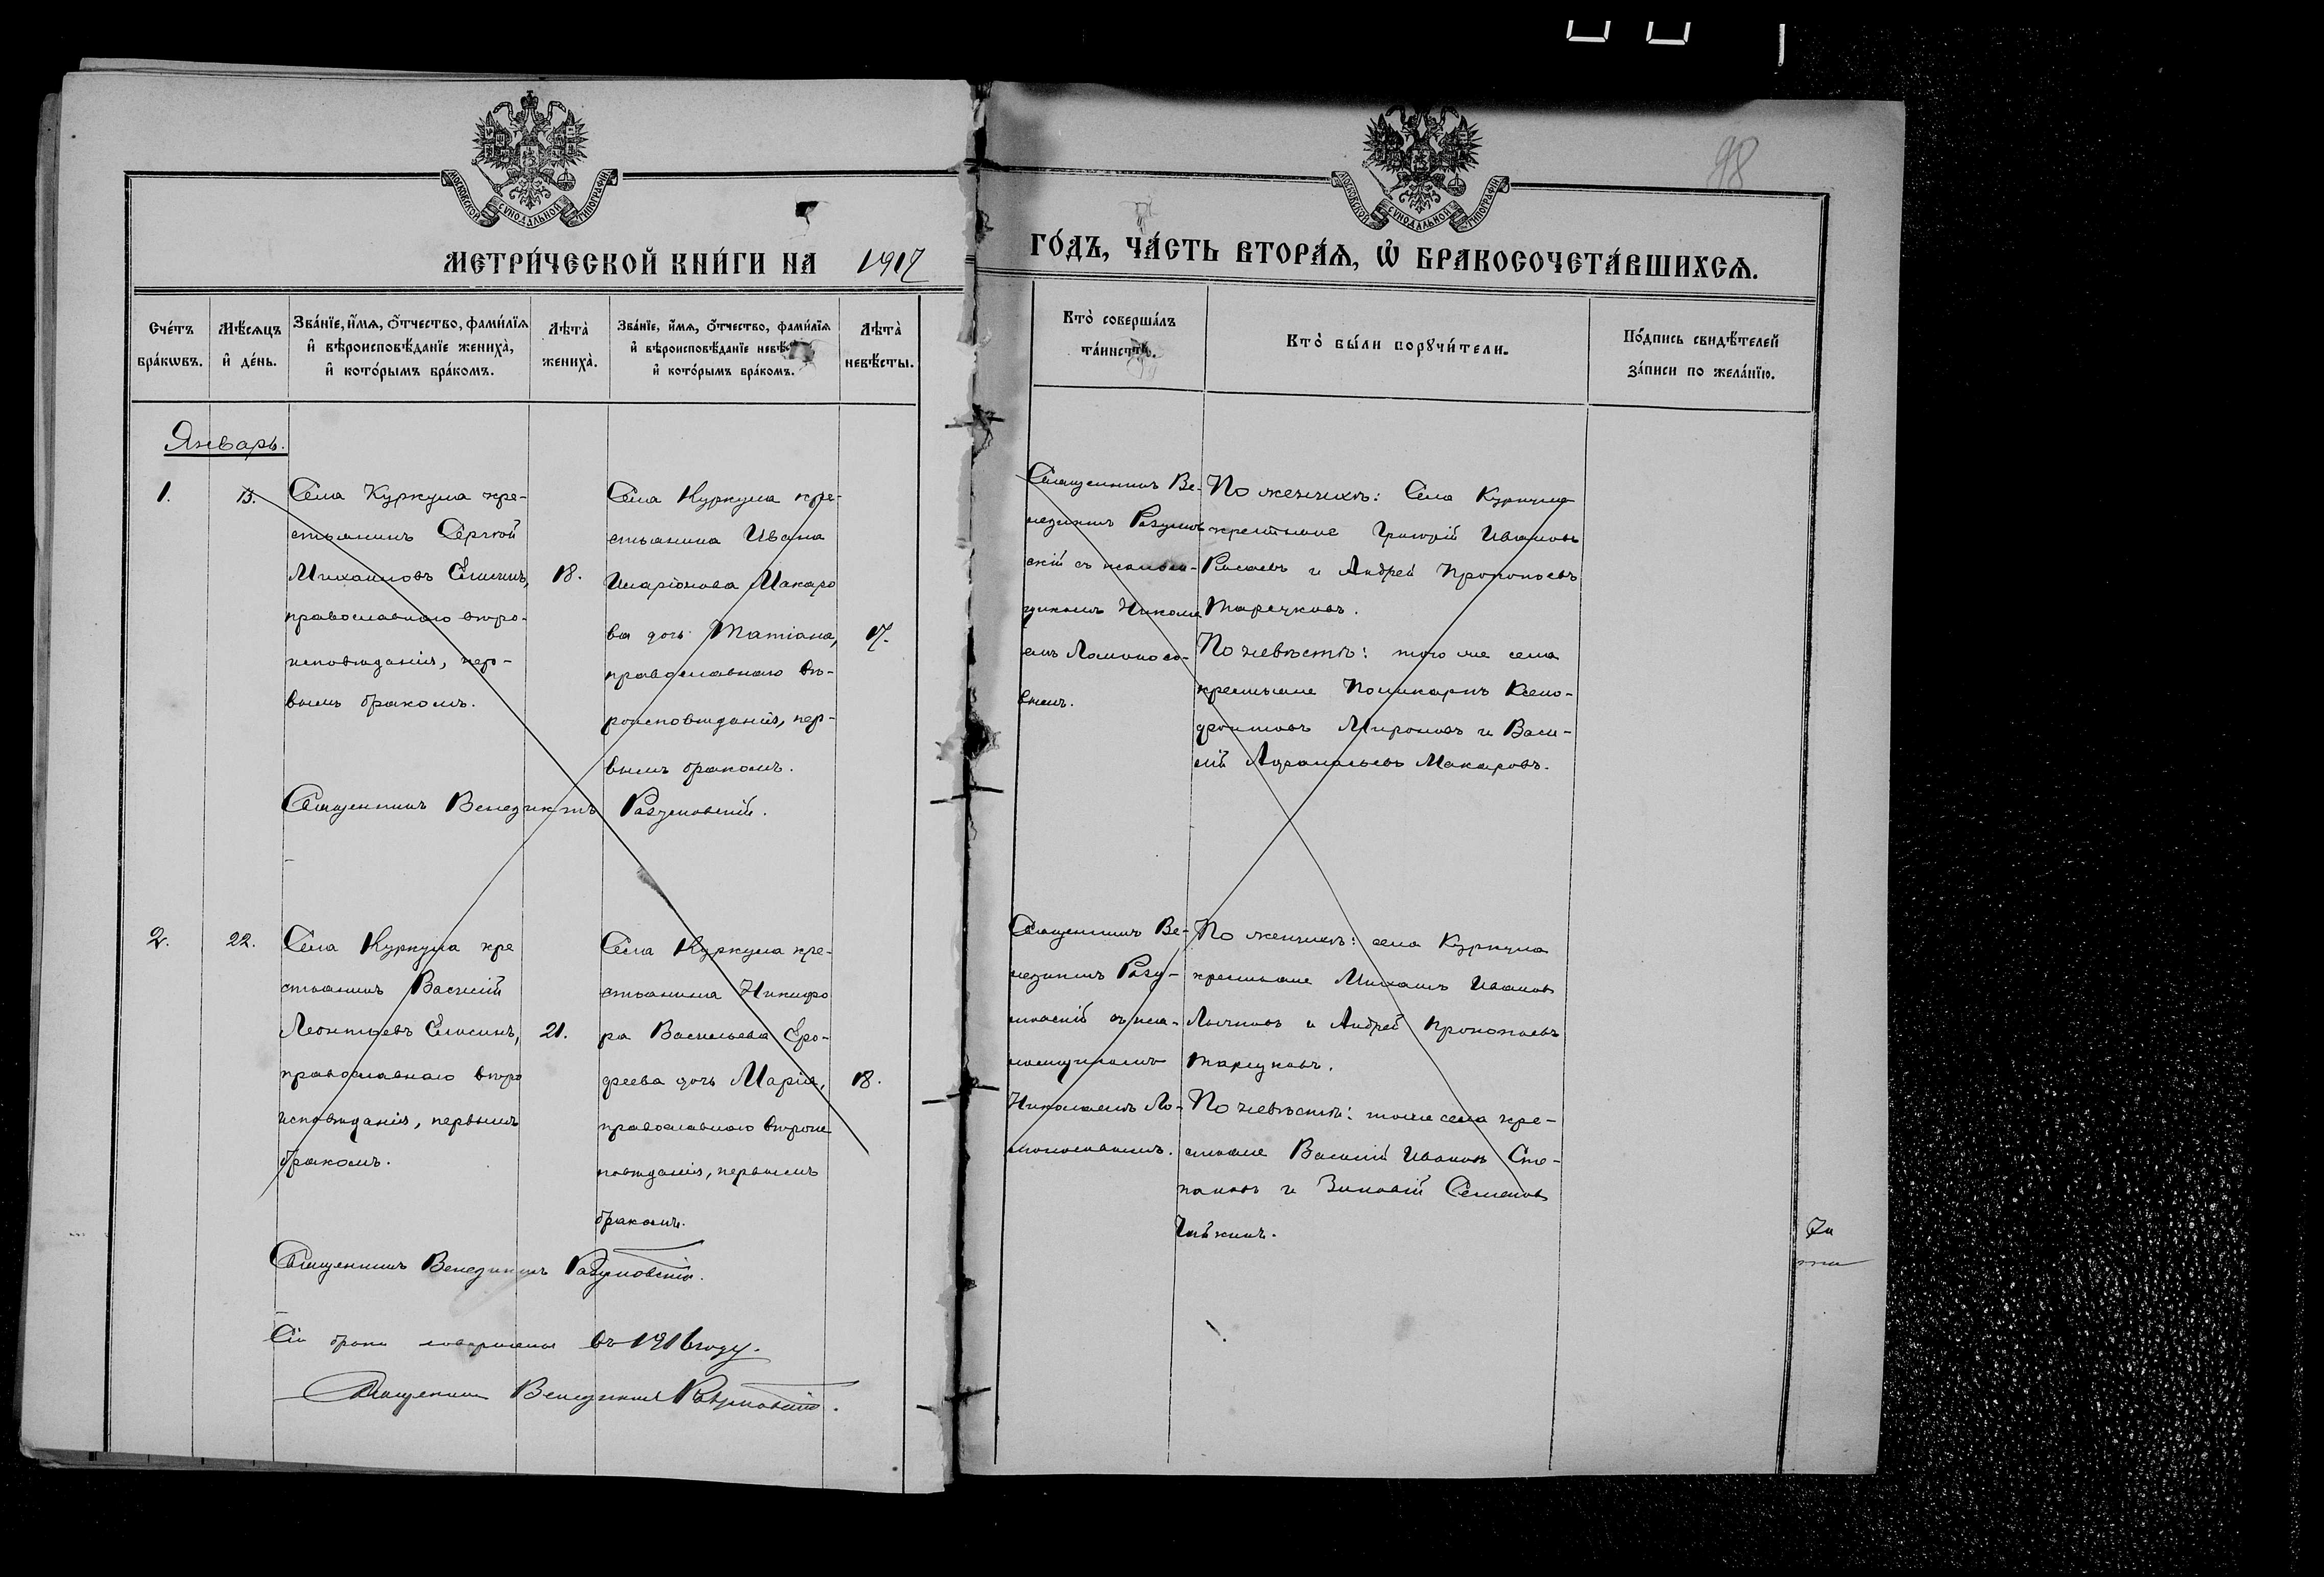 98
МОСКОВСКОЙ СѴНОДАЛЬНОЙ ТИПОГРАФІИ
МОСКОВСКОЙ СѴНОДАЛЬНОЙ ТИПОГРАФІИ
МЕТРИ́ЧЕСКОЙ КНИ́ГИ НА 1917
ГО́ДЪ, ЧА́СТЬ ВТОРА́Я, Ѡ҆ БРАКОСОЧЕТА́ВШИХСЯ.
Сче́тъ
бра́кωвъ.
Мѣ́сяцъ
и҆ де́нь.
Зва́нїе, и҆́мя, о҆́тчество, фами́лїя
и҆ вѣроисповѣ́данїе жениха̀,
и҆ кото́рымъ бра́комъ.
Лѣта̀
жениха̀.
Зва́нїе, и҆́мя, о҆́тчество, фами́лїя
и҆ вѣроисповѣ́данїе невѣ́сты
и҆ кото́рымъ бра́комъ.
Лѣта̀
невѣ́сты.
Кто̀ соверша́лъ
та́инство.
Кто̀ бы́ли порꙋчи́тели.
По́дпись свидѣ́телей
за́писи по жела́нїю.
Январь.
1.
13.
Села Куркула кре-
стьянинъ Сергѣй
Михаиловъ Елисинъ,
православнаго вѣро-
исповѣданія, пер-
вымъ бракомъ.
18.
Села Куркула кре-
стьянина Ивана
Иларіонова Макаро
ва дочь Татіана,
православнаго вѣ-
роисповѣданія, пер-
вымъ бракомъ.
17.
Священникъ Венедиктъ Разумовскій.
Священникъ Ве-
недиктъ Разумов
скій съ псалом-
щикомъ Никола
емъ Ломоносо-
вымъ.
По женихѣ: Села Куркула
крестьяне Григорій Ивановъ
и Андрей Прокопьевъ
По невѣстѣ: того же села
крестьяне Поликарпъ Ксено-
фонтовъ Мироновъ и Васи-
лій Макаровъ.
2.
22.
Села Куркула кре
стьянинъ Василій
Леонтьевъ Елисинъ,
православнаго вѣро
исповѣданія, первымъ
бракомъ.
21.
Села Куркула кре-
стьянина Никифо
ра Васильева Еро-
феева дочь Марія,
православнаго вѣроис
повѣданія, первымъ
бракомъ.
18.
Священникъ Венедиктъ Разумовскій.
Священникъ Ве-
недиктъ Разу-
мовскій съ пса-
ломщикомъ
Николаемъ Ло-
моносовымъ.
По женихѣ: села Куркула
крестьяне Михаилъ Ивановъ
и Андрей Прокопьевъ
По невѣстѣ: того же села кре-
стьяне Василій Ивановъ Сте-
пановъ и Зиновій Семеновъ
Сіи браки совершены въ 1916 году.
Священникъ Венедиктъ Разумовскій.